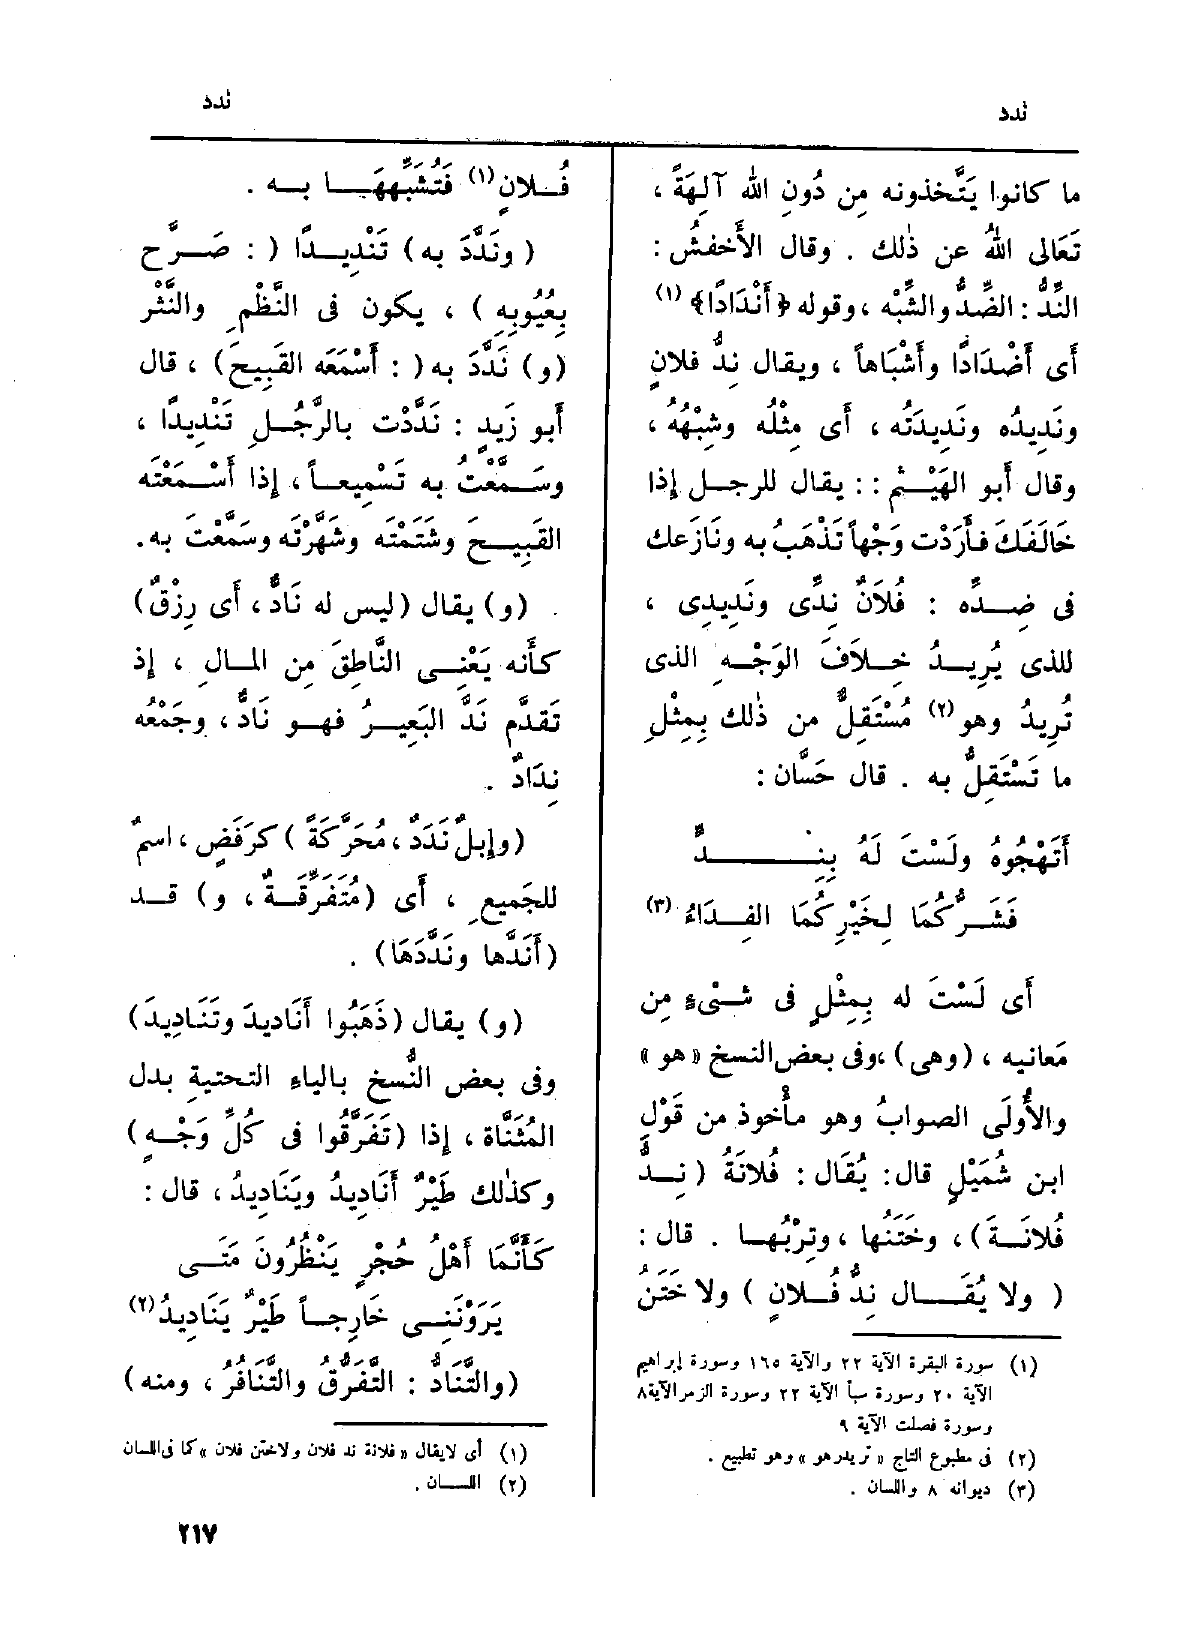 ندد
ما كانوا يَتَّخذونه مِن دُونِ اللهِ آلِهَةً ،
تَعَالى اللهُ عن ذٰلك . وقال الأَخفشُ :
النِّدُّ : الضِّدُّ والشِّبْه ، وقوله ﴿أَنْدَادًا﴾ (١)
أَى أَضْدَادًا وأَشْبَاهاً ، ويقال نِدُّ فلانٍ
ونَدِيدُه ونَدِيدَتُه ، أَى مِثْلُه وشِبْهُه ،
وقال أَبو الهَيْثم : : يقال للرجل إِذا
خَالَفَكَ فأَرَدْت وَجْهاً تَذْهَبُ به ونَازَعك
فى ضِدّه : فُلَانٌ نِدِّى ونَدِيدِى ،
للذى يُرِيدُ خِلافَ الوَجْهِ الذى
تُرِيدُ وهو (٢) مُسْتَقِلٌّ من ذٰلك بِمِثْلِ
ما تَسْتَقِلُّ به . قال حَسَّان :
أَتَهْجُوهُ ولَسْتَ لَهُ بِنِدٍّ
فَشَرُّكُمَا لِخَيْرِكُمَا الفِدَاءُ (٣)
أَى لَسْتَ له بِمِثْلٍ فى شىْءٍ مِن
مَعانيه ، (وهى) ،وفى بعض النسخ « هو »
والأُولَى الصوابُ وهو مأْخوذ من قَوْلِ
ابن شُمَيْلٍ قال: يُقَال : فُلانَةُ (نِدُّ
فُلانَةَ) ، وخَتَنُها ، وتِرْبُها . قال :
( ولا يُقَال نِدُّ فُلانٍ ) ولا خَتَنُ
(١) سورة البقرة الآية ٢٢ والآية ١٦٥ وسورة إبراهيم
الآية ٢٠ وسورة سبأ الآية ٢٢ وسورة الزمر الآية ٨
وسورة فصلت الآية ٩
(٢) فى مطبوع التاج « تريدرهو » وهو تطبيع .
(٣) ديوانه ٨ واللسان .
ندد
فُلانٍ (١) فَتُشَبِّهَهَا به .
( ونَدَّدَ به) تَنْدِيدًا ( : صَرَّح
بِعُيُوبِه ) ، يكون فى النَّظْمِ والنَّثْر
(و) نَدَّدَ به ( : أَسْمَعَه القَبِيحَ) ، قال
أَبو زَيدٍ : نَدَّدْت بالرَّجُلِ تَنْدِيدًا ،
وسَمَّعْتُ به تَسْمِيعاً ، إِذا أَسْمَعْتَه
القَبِيحَ وشَتَمْتَه وشَهَّرْتَه وسَمَّعْتَ به.
(و) يقال (ليس له نَادٌّ ، أَى رِزْقٌ)
كأَنه يَعْنِى النَّاطِقَ مِن المال ، إِذ
تَقدَّم نَدَّ البَعِيرُ فهو نَادٌّ ، وجَمْعُه
نِدَادٌ .
(وإِبلٌ نَدَدٌ ، مُحَرَّكَةً ) كرَفَضٍ ، اسمٌ
للجَمِيعِ ، أَى (مُتَفَرِّقَةٌ ، و) قد
(أَنَدَّها ونَدَّدَهَا) .
(و) يقال (ذَهَبُوا أَنَادِيدَ وتَنَادِيدَ)
وفى بعض النُّسخ بالياءِ التحتية بدل
المُثَنَّاة ، إِذا (تَفَرَّقُوا فى كُلِّ وَجْهٍ)
وكذٰلك طَيْرٌ أَنَادِيدُ ويَنَادِيدُ ، قال :
كَأَنَّمَا أَهْلُ حُجْرٍ يَنْظُرُونَ مَتَى
يَرَوْنَنِى خَارِجاً طَيْرٌ يَنَادِيدُ (٢)
(والتَّنَادُّ : التَّفَرُّقُ والتَّنَافُرُ ، ومنه)
(١) أى لا يقال « فلانة ند فلان ولا ختن فلان » كما فى اللسان
(٢) اللسان .
٢١٧